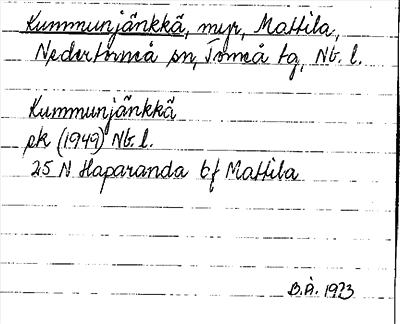 Kummunjänkkä, myr, Mattila,
Nedertorneå sn, Torneå tg, Nb. l.
Kummunjänkkä
pk (1949) Nb. l.
25 N Haparanda bf Mattila
B.Å. 1973